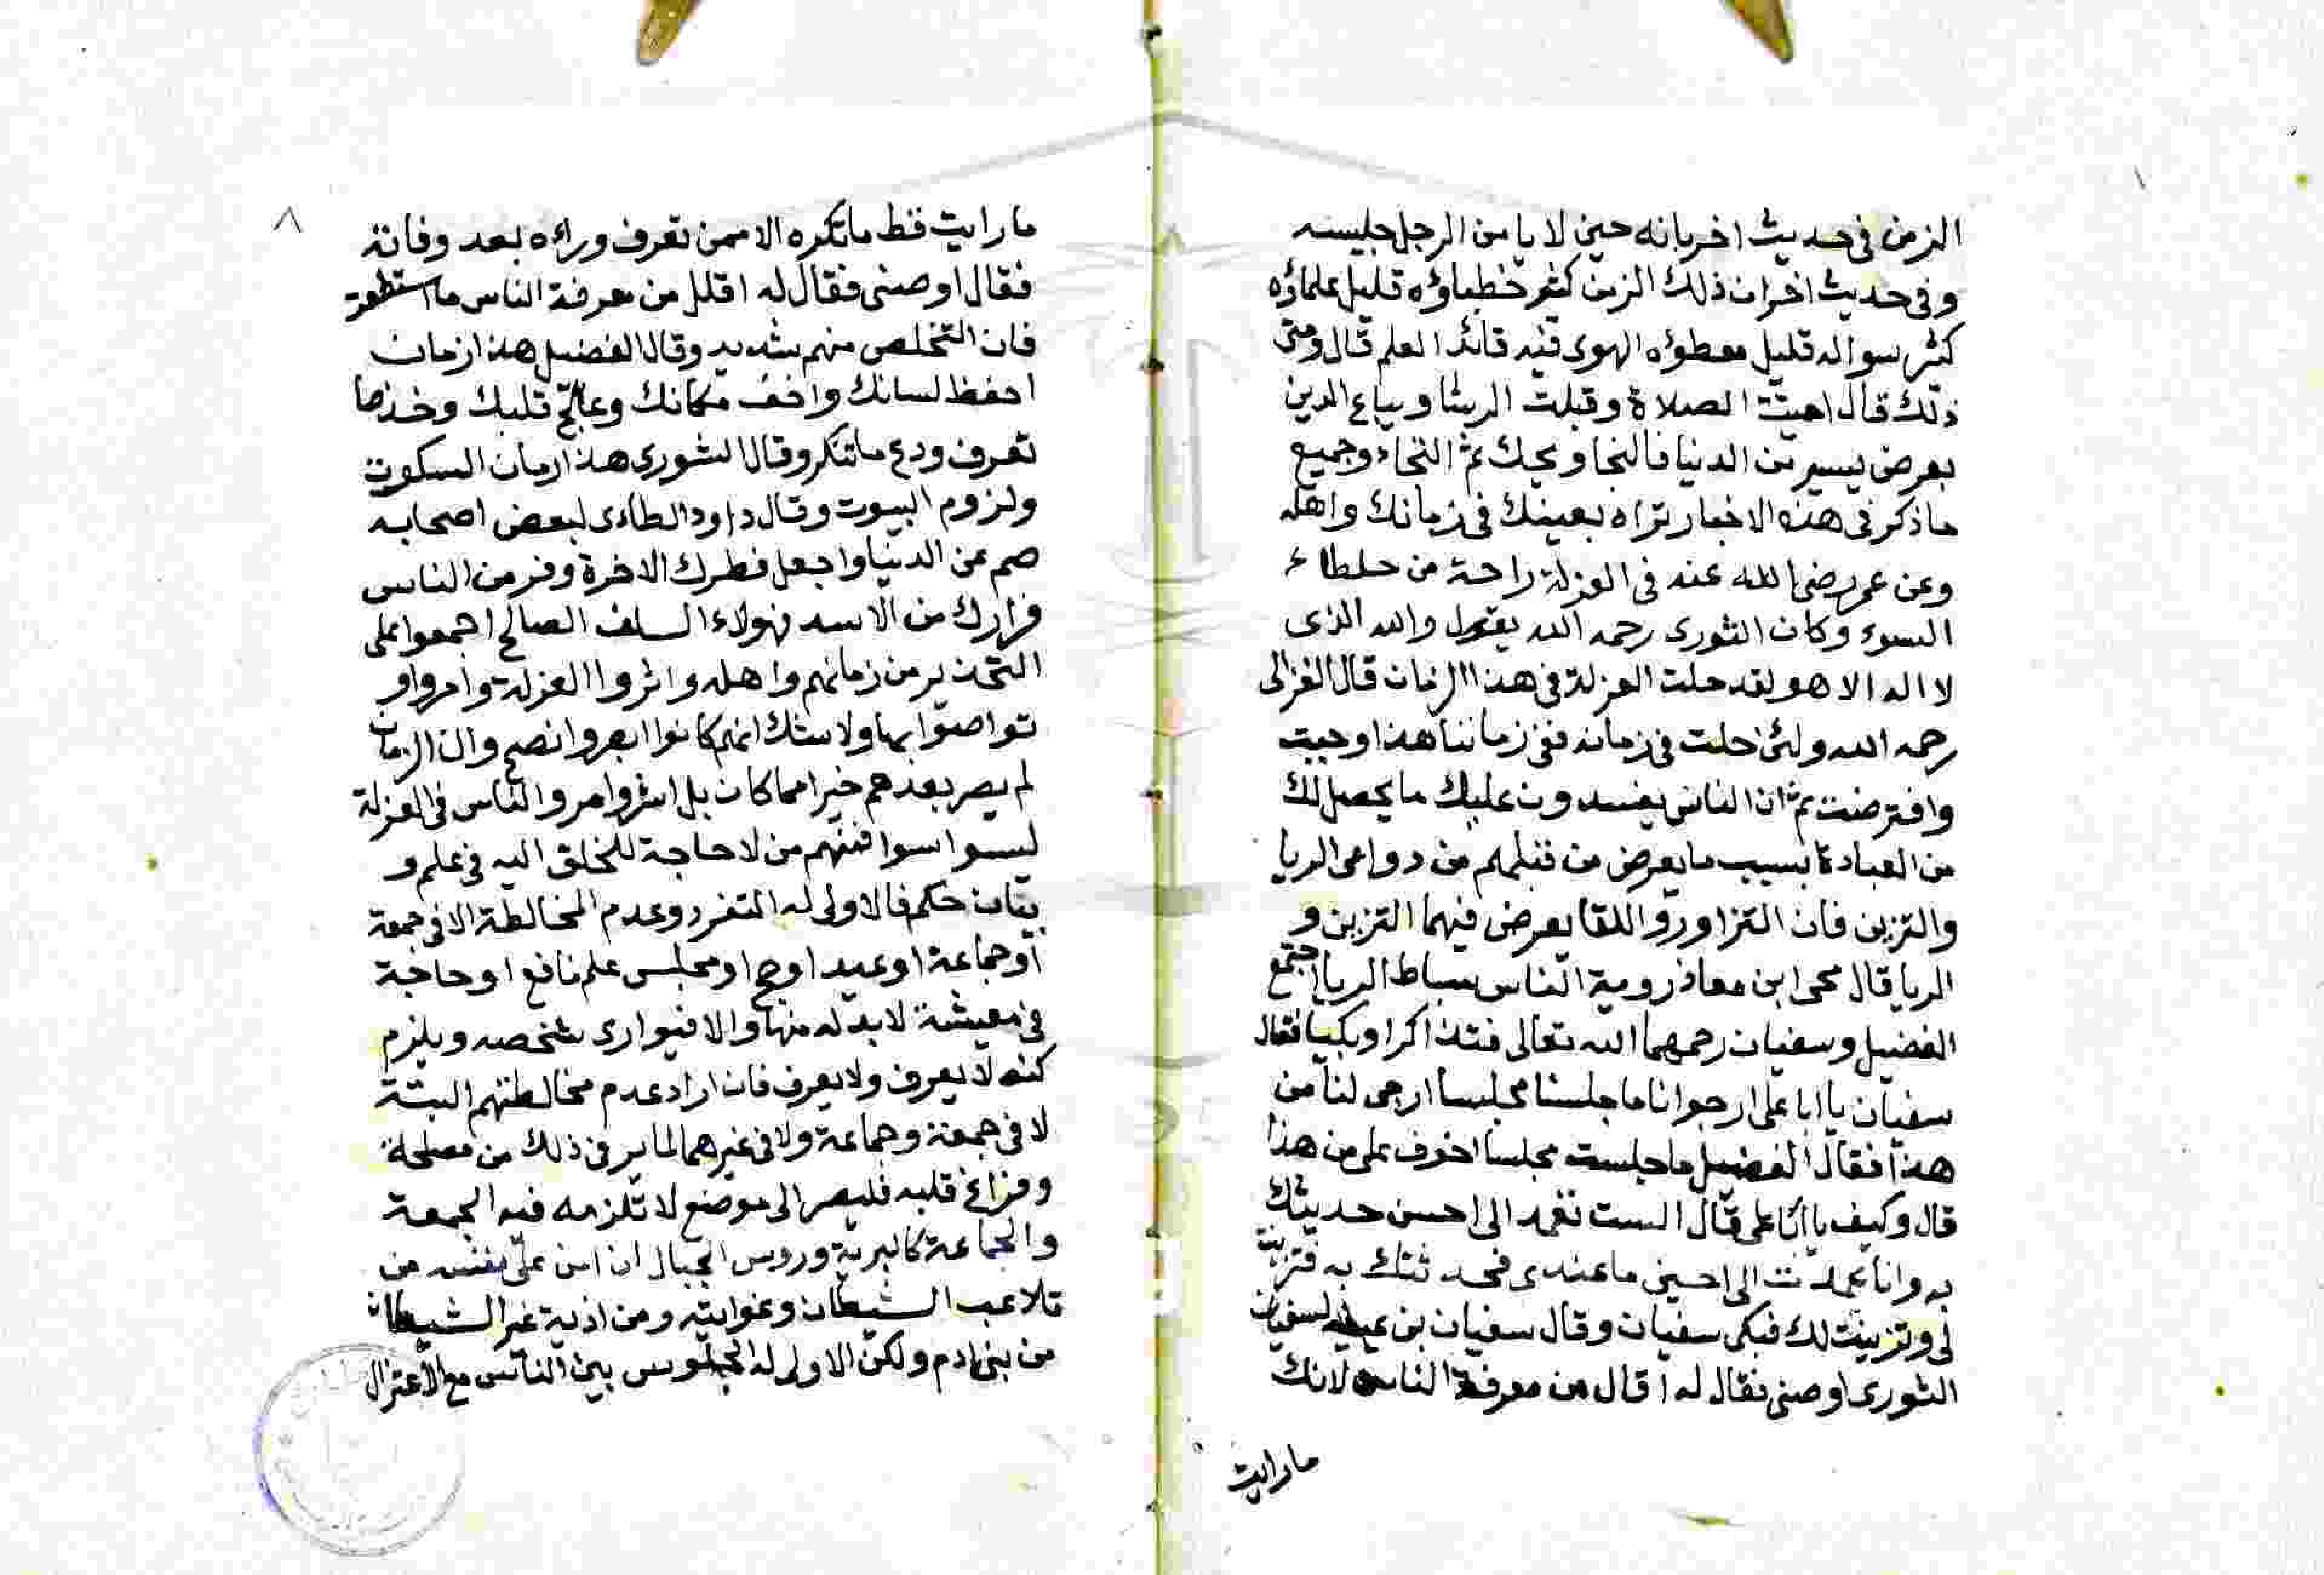 الزمن فى حديث اخر بانه حين لا يامن الرجل جليسه
وفى حديث اخر ان ذلك الزمن كثير خطباؤه قليل علماؤه
كثير سواله قليل معطوه الهوى فيه قائد العلم قال ومتى
ذلك قال اميتت الصلاة وقبلت الرشا ويباع الدين
بعرض يسير من الدنيا فالنجا ويحك ثم النجاء وجميع
ما ذكر فى هذه الاخبار تراه بعينك فى زمانك واهله
وعن عمر رضى الله عنه فى العزلة راحة من خلطاء
السوء وكان الثورى رحمه الله يقول والله الذى
لا اله الا هو لقد حلت العزلة فى هذا الزمان قال الغزالى
رحمه الله ولئن حلت فى زمانه ففى زماننا هذا وجبت
وافترضت ثم ان الناس يفسدون عليك ما يحصل لك
من العبادة بسبب ما يعرض من قبلهم من دواعى الريا
والتزين فان التزاور واللقا يعرض فيهما التزين و
الريا قال يحى ابن معاذ روية الناس بساط الريا اجتمع
الفضيل وسفيان رحمهما الله تعالى فتذاكرا وبكيا فقال
سفيان يا ابا على ارجوانا ما جلسنا مجلسا ارجى لنا من
هذا فقال الفضيل ما جلست مجلسا اخوف على من هذا
قال وكيف يا ابا على قال الست تعمد الى احسن حديثك
به وانا عمدت الى احسن ما عندى فحدثتك به فتزينت
لى وتزينت لك فبكى سفيان وقال سفيان بن عيينه لسفيان
الثورى اوصنى فقال له اقلل من معرفة الناس لانك
مارايت
٨
مارايت قط ماتكره الا ممن تعرف وراءه بعد وفاته
فقال اوصنى فقال له اقلل من معرفة الناس ما استطعت
فان التخلص منهم شديد وقال الفضيل هذا زمان
احفظ لسانك واخف مكانك وعالج قلبك وخذ ما
تعرف ودع ما تنكر وقال الثورى هذا زمان السكوت
ولزوم البيوت وقال داود الطاءى لبعض اصحابه
صم عن الدنيا واجعل فطرك الاخرة وفر من الناس
فرارك من الاسد فهولاء السلف الصالح اجمعوا على
التحذير من زمانهم واهله واثروا العزلة وامروا و
تواصوا بها ولا شك انهم كانوا ابصر وانصح وان الزمان
لم يصر بعدهم خيرا مما كان بل اشر وامر والناس فى العزلة
ليسوا سوا فمنهم من لا حاجة للخلق اليه فى علم و
بيان حكم فالاولى له التفرد وعدم المخالطة الا فى جمعة
او جماعة او عيد او حج او مجلس علم نافع او حاجة
فى معيشة لا بد له منها والا فيوارى شخصه ويلزم
كنه لا يعرف ولا يعرف فان اراد عدم مخالطتهم البتة
لا فى جمعة وجماعة ولا فى غيرهما لما ير فى ذلك من مصلحة
وفراغ قلبه فليصر الى موضع لا تلزمه فيه الجمعة
والجماعة كالبرية وروس الجبال ان امن على نفسه من
تلاعب الشيطان وغوايته ومن اذية غير الشيطان
من بنى ادم ولكن الاولى له الجلوس بين الناس مع الاعتزال